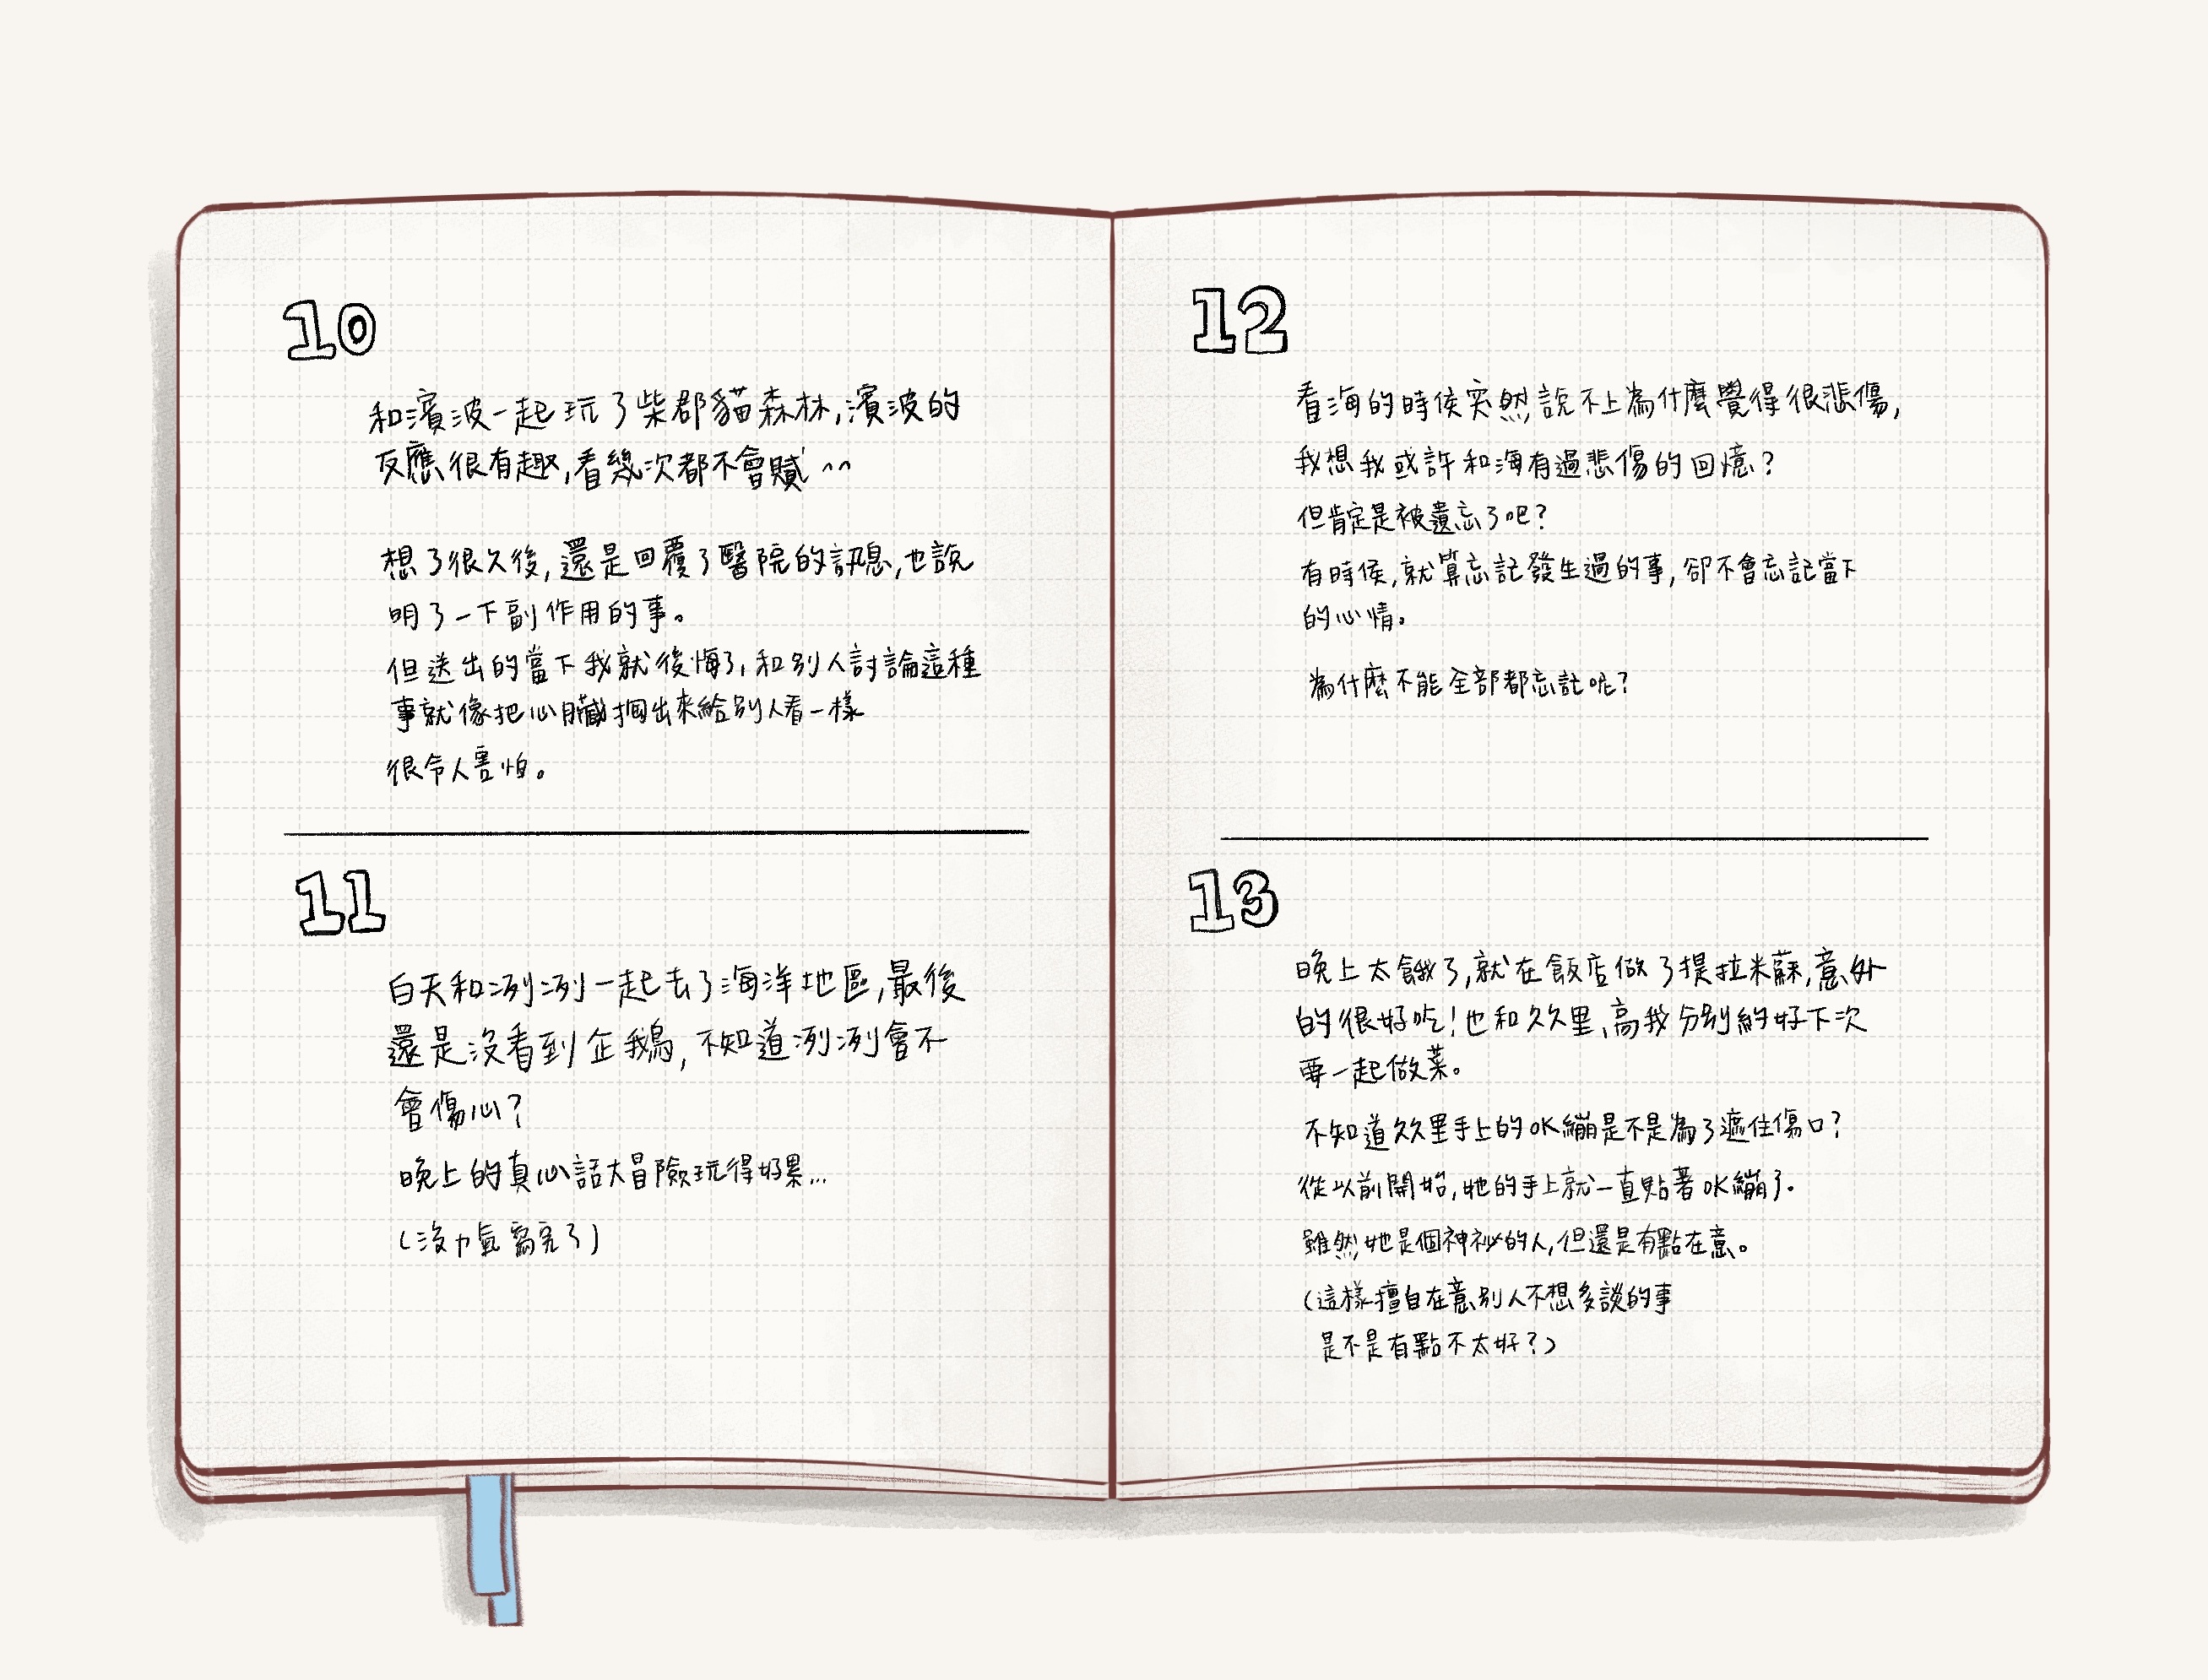 10
和濱波一起玩了柴郡貓森林,濱波的
反應很有趣,看幾次都不會膩 ^^
想了很久後,還是回覆了醫院的訊息,也說
明了一下副作用的事。
但送出的當下我就後悔了,和別人討論這種
事就像把心臟掏出來給別人看一樣
很令人害怕。
11
白天和冽冽一起去了海洋地區,最後
還是沒看到企鵝,不知道冽冽會不
會傷心?
晚上的真心話大冒險玩得好累...
(沒力氣寫完了)
12
看海的時侯突然說不上為什麼覺得很悲傷,
我想我或許和海有過悲傷的回憶?
但肯定是被遺忘了吧?
有時侯,就算忘記發生過的事,卻不會忘記當下
的心情。
為什麼不能全部都忘記呢?
13
晚上太餓了,就在飯店做了提拉米蘇,意外
的很好吃!也和久久里、高我分別約好下次
要一起做菜。
不知道久久里手上的OK繃是不是為了遮住傷口?
從以前開始,她的手上就一直貼著OK繃了.
雖然她是個神祕的人,但還是有點在意。
(這樣擅自在意別人不想多談的事
是不是有點不太好?)